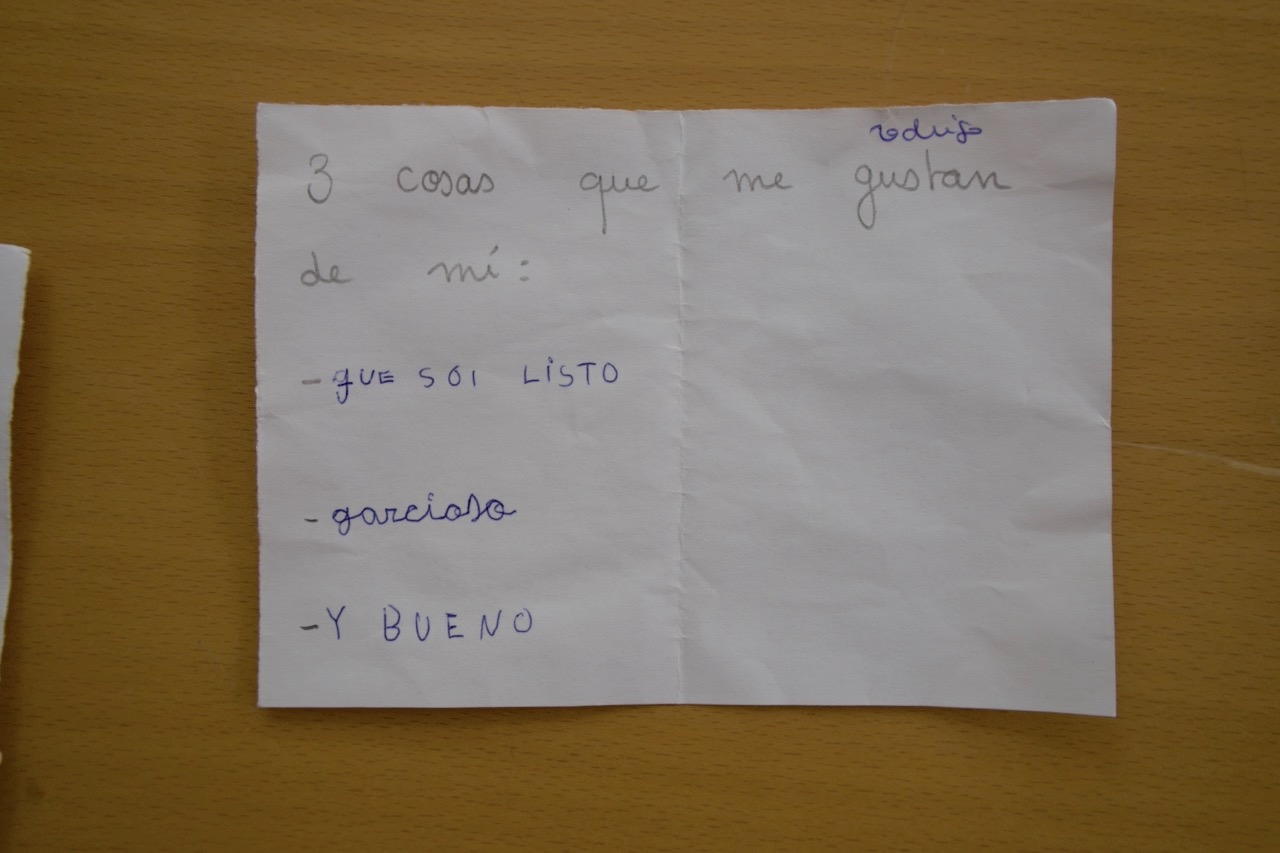 rodrigo
3 cosas que me gustan
de mí:
- QUE SOI LiSTO
- garcioso
- Y BUENO